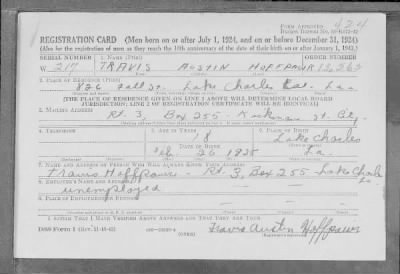 424
FORM APPROVED
REGISTRATION CARD—(Men born on or after July 1, 1924, and on or before December 31, 1924)
(Also for the registration of men as they reach the 18th anniversary of the date of their birth on or after January 1, 1943.)
SERIAL NUMBER
1. NAME (Print)
W 217 TRAVIS AUSTIN HOFFPAUR
2. PLACE OF RESIDENCE (Print)
826 Hall St. Lake Charles La.
[THE PLACE OF RESIDENCE GIVEN ON LINE 2 ABOVE WILL DETERMINE LOCAL BOARD
JURISDICTION; LINE 2 OF REGISTRATION CERTIFICATE WILL BE IDENTICAL]
3. MAILING ADDRESS
Rt. 3, Box 255 St. City
4. TELEPHONE
5. AGE IN YEARS
6. PLACE OF BIRTH
18
Lake Charles
Feb. 26 1925
La.
7. NAME AND ADDRESS OF PERSON WHO WILL ALWAYS KNOW YOUR ADDRESS
Travis Hoffpaur - Rt. 3, Box 255 - Lake Charles
La.
8. EMPLOYER'S NAME AND ADDRESS
unemployed
9. PLACE OF EMPLOYMENT OR BUSINESS
I AFFIRM THAT I HAVE VERIFIED ABOVE ANSWERS AND THAT THEY ARE TRUE.
DSS FORM 1
(OVER)
Travis Austin Hoffpaur